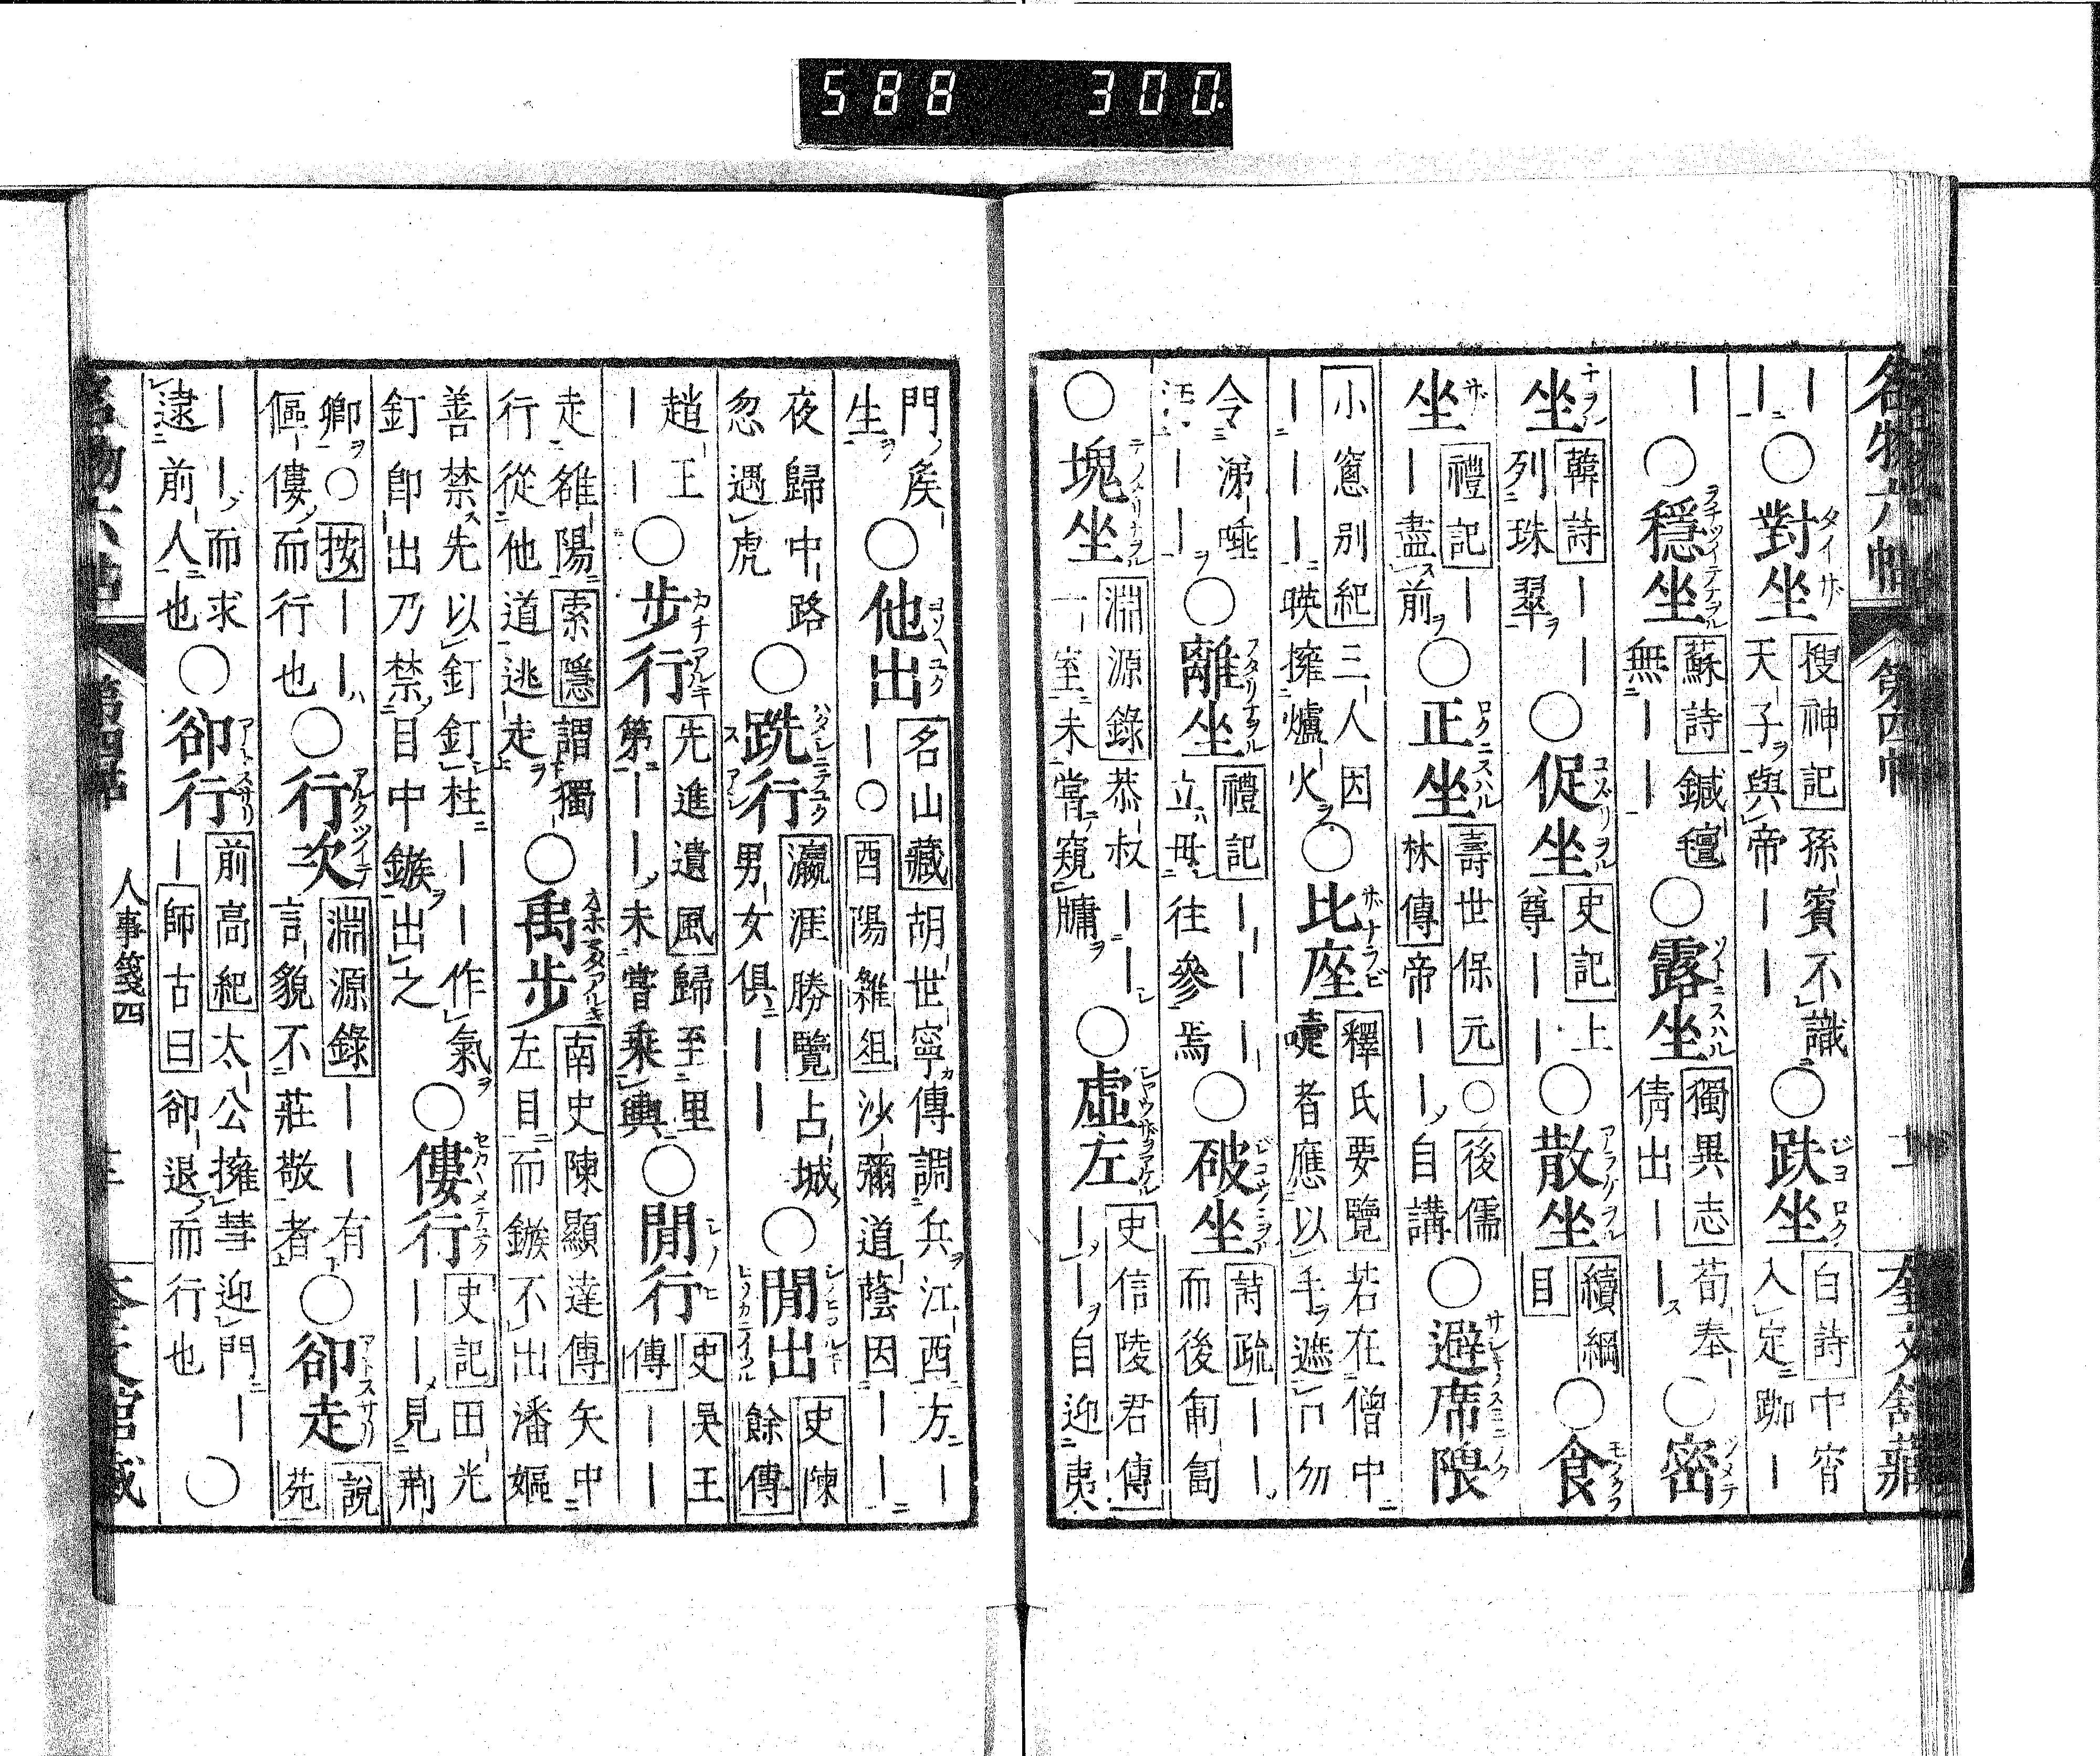 588 300.
名物六帖 第四帖 十二 奎文館藏
｜｜｜○對坐 搜神記孫賓不識天子與帝｜｜○趺坐 白詩中宵入定跏｜
｜○穩坐 蘇詩鍼氊無｜｜○露坐 獨異志荀奉倩出｜｜○密
坐 韓詩｜｜列珠翠○促坐 史記上尊｜｜○散坐 續綱目○食
坐 禮記｜｜盡前○正坐 壽世保元○後儒林傳帝｜｜自講○避席隈
小窓別紀三人因｜｜｜暎擁爐火○比座 釋氏要覽若在僧中嚏者應以手遮口勿
令涕唾汚｜｜○離坐 禮記｜｜｜立毋往參焉○破坐 詩疏｜｜而後匍匐
○塊坐 淵源錄恭叔｜｜一室未嘗窺牖○虛左 史信陵君傳｜｜自迎夷
門矦生○他出 名山藏胡世寧傳調兵江西方｜｜○酉陽雜俎沙彌道蔭因｜｜
夜歸中路忽遇虎○跣行 瀛涯勝覽占城男女俱｜｜○閒出 史陳餘傳
趙王｜｜○步行 先進遺風歸至里第｜｜未嘗乘輿○閒行 史吳王傳｜｜
走雒陽索隱謂獨行從他道逃走○禹步 南史陳顯達傳矢中左目而鏃不出潘嫗
善禁先以釘釘柱｜｜作氣釘卽出乃禁目中鏃出之○僂行 史記田光｜｜見荊
卿○按｜｜傴僂而行也○行次 淵源錄｜｜有言貌不莊敬者○卻走 說苑
｜｜而求逮前人也○卻行 前高紀太公擁彗迎門｜｜師古曰卻退而行也○
人事箋四